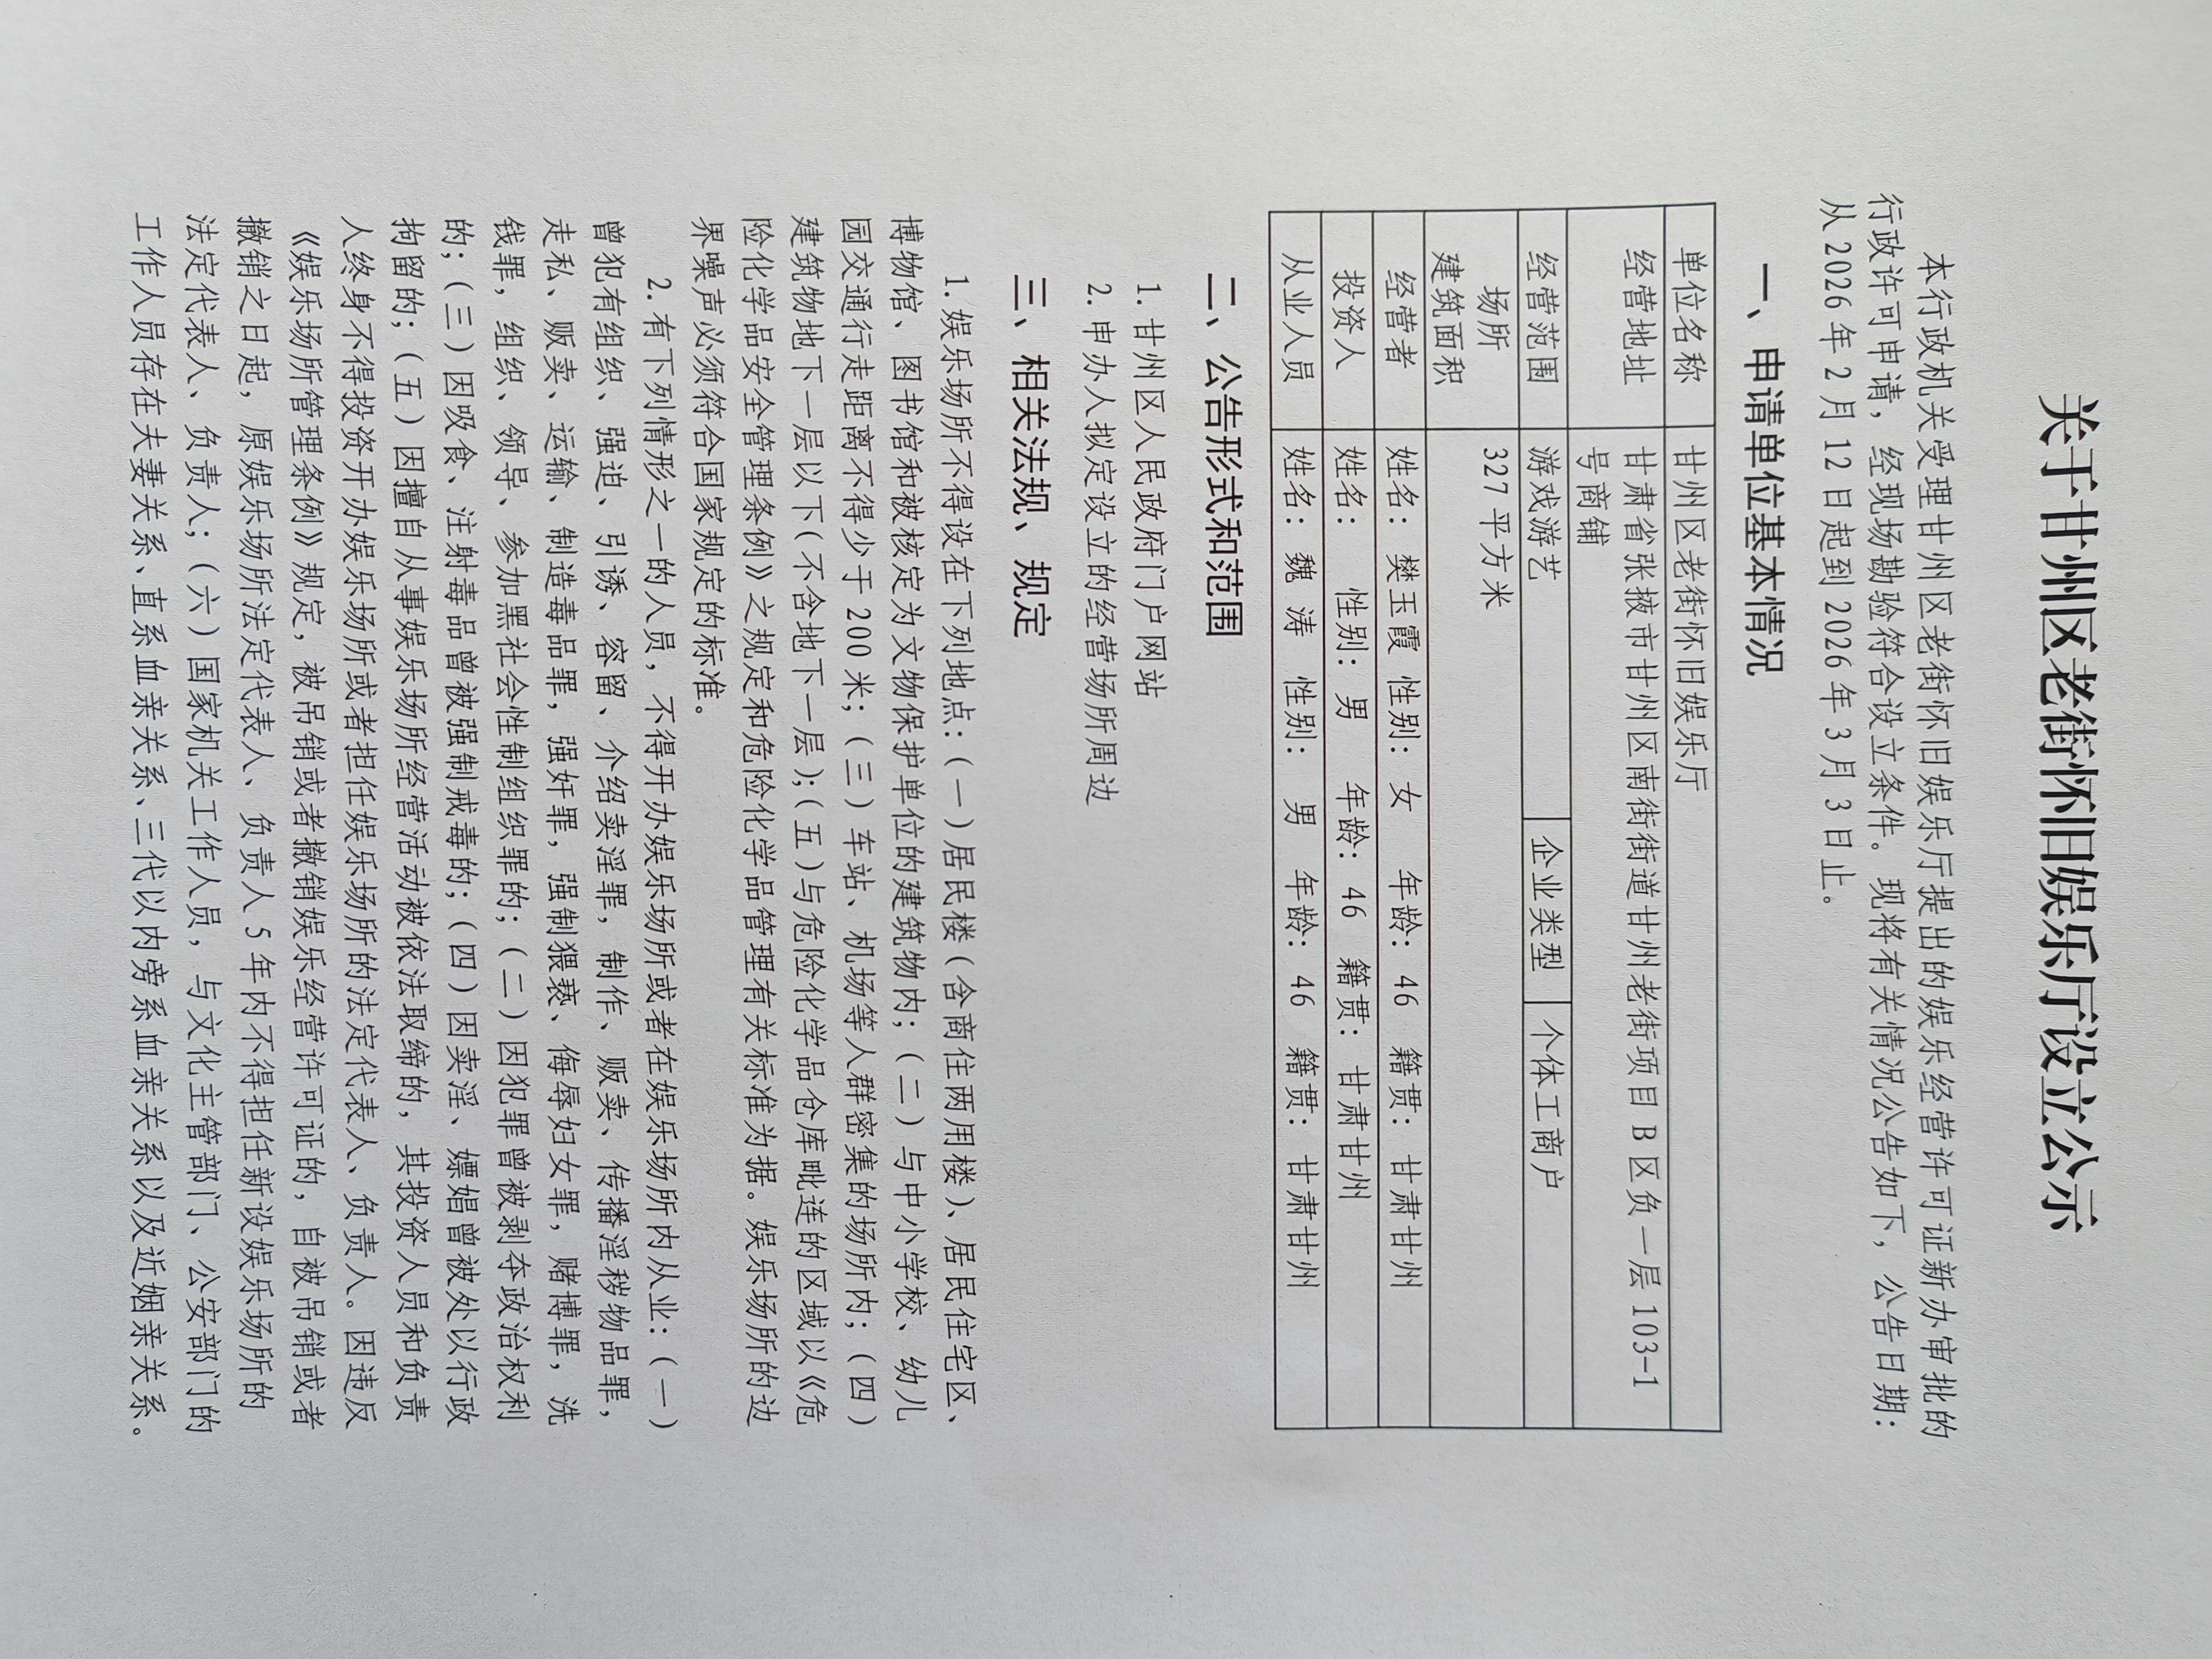 关于甘州区老街怀旧娱乐厅设立公示
本行政机关受理甘州区老街怀旧娱乐厅提出的娱乐经营许可证新办审批的
行政许可申请，经现场勘验符合设立条件。现将有关情况公告如下，公告日期：
从2026年2月12日起到2026年3月3日止。
一、申请单位基本情况
单位名称 甘州区老街怀旧娱乐厅
经营地址 甘肃省张掖市甘州区南街街道甘州老街项目B区负一层103-1
号商铺
经营范围 游戏游艺 企业类型 个体工商户
场所
建筑面积 327平方米
经营者 姓名：樊玉霞 性别：女 年龄：46 籍贯：甘肃甘州
投资人 姓名： 性别：男 年龄：46 籍贯：甘肃甘州
从业人员 姓名：魏 涛 性别：男 年龄：46 籍贯：甘肃甘州
二、公告形式和范围
1.甘州区人民政府门户网站
2.申办人拟定设立的经营场所周边
三、相关法规、规定
1.娱乐场所不得设在下列地点：（一）居民楼（含商住两用楼）、居民住宅区、
博物馆、图书馆和被核定为文物保护单位的建筑物内；（二）与中小学校、幼儿
园交通行走距离不得少于200米；（三）车站、机场等人群密集的场所内；（四）
建筑物地下一层以下（不含地下一层）；（五）与危险化学品仓库毗连的区域以《危
险化学品安全管理条例》之规定和危险化学品管理有关标准为据。娱乐场所的边
界噪声必须符合国家规定的标准。
2.有下列情形之一的人员，不得开办娱乐场所或者在娱乐场所内从业：（一）
曾犯有组织、强迫、引诱、容留、介绍卖淫罪，制作、贩卖、传播淫秽物品罪，
走私、贩卖、运输、制造毒品罪，强奸罪，强制猥亵、侮辱妇女罪，赌博罪，洗
钱罪，组织、领导、参加黑社会性制组织罪的；（二）因犯罪曾被剥夺政治权利
的；（三）因吸食、注射毒品曾被强制戒毒的；（四）因卖淫、嫖娼曾被处以行政
拘留的；（五）因擅自从事娱乐场所经营活动被依法取缔的，其投资人员和负责
人终身不得投资开办娱乐场所或者担任娱乐场所的法定代表人、负责人。因违反
《娱乐场所管理条例》规定，被吊销或者撤销娱乐经营许可证的，自被吊销或者
撤销之日起，原娱乐场所法定代表人、负责人5年内不得担任新设娱乐场所的
法定代表人、负责人；（六）国家机关工作人员，与文化主管部门、公安部门的
工作人员存在夫妻关系、直系血亲关系、三代以内旁系血亲关系以及近姻亲关系。